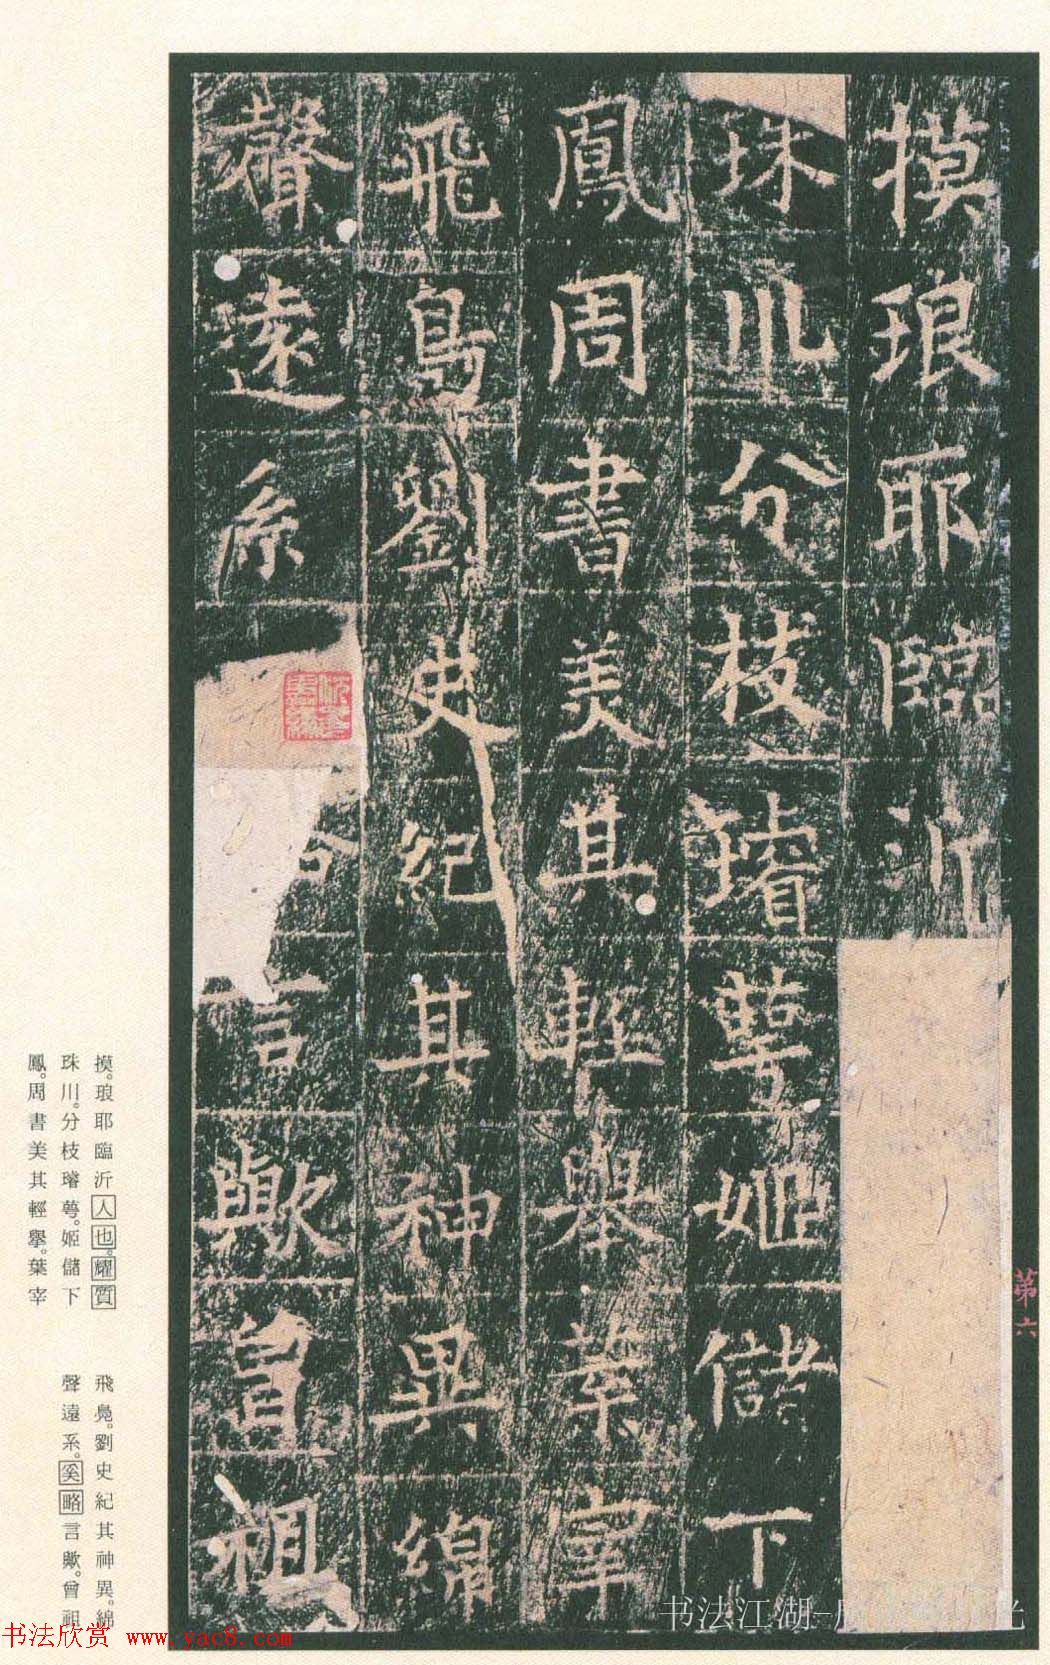 摸琅耶臨沂
珠川分枝璿萼姬儲下
鳳周書美其輕舉葉宰
飛鳧劉史紀其神異綿
聲遠系言歟曾祖
第六
摸。琅耶臨沂人也。耀質
珠川。分枝璿萼。姬儲下
鳳。周書美其輕擧。葉宰
飛鳧。劉史紀其神異。綿
聲遠系。奚略言歟。曾祖
书法欣赏 www.yac8.com
书法江湖-